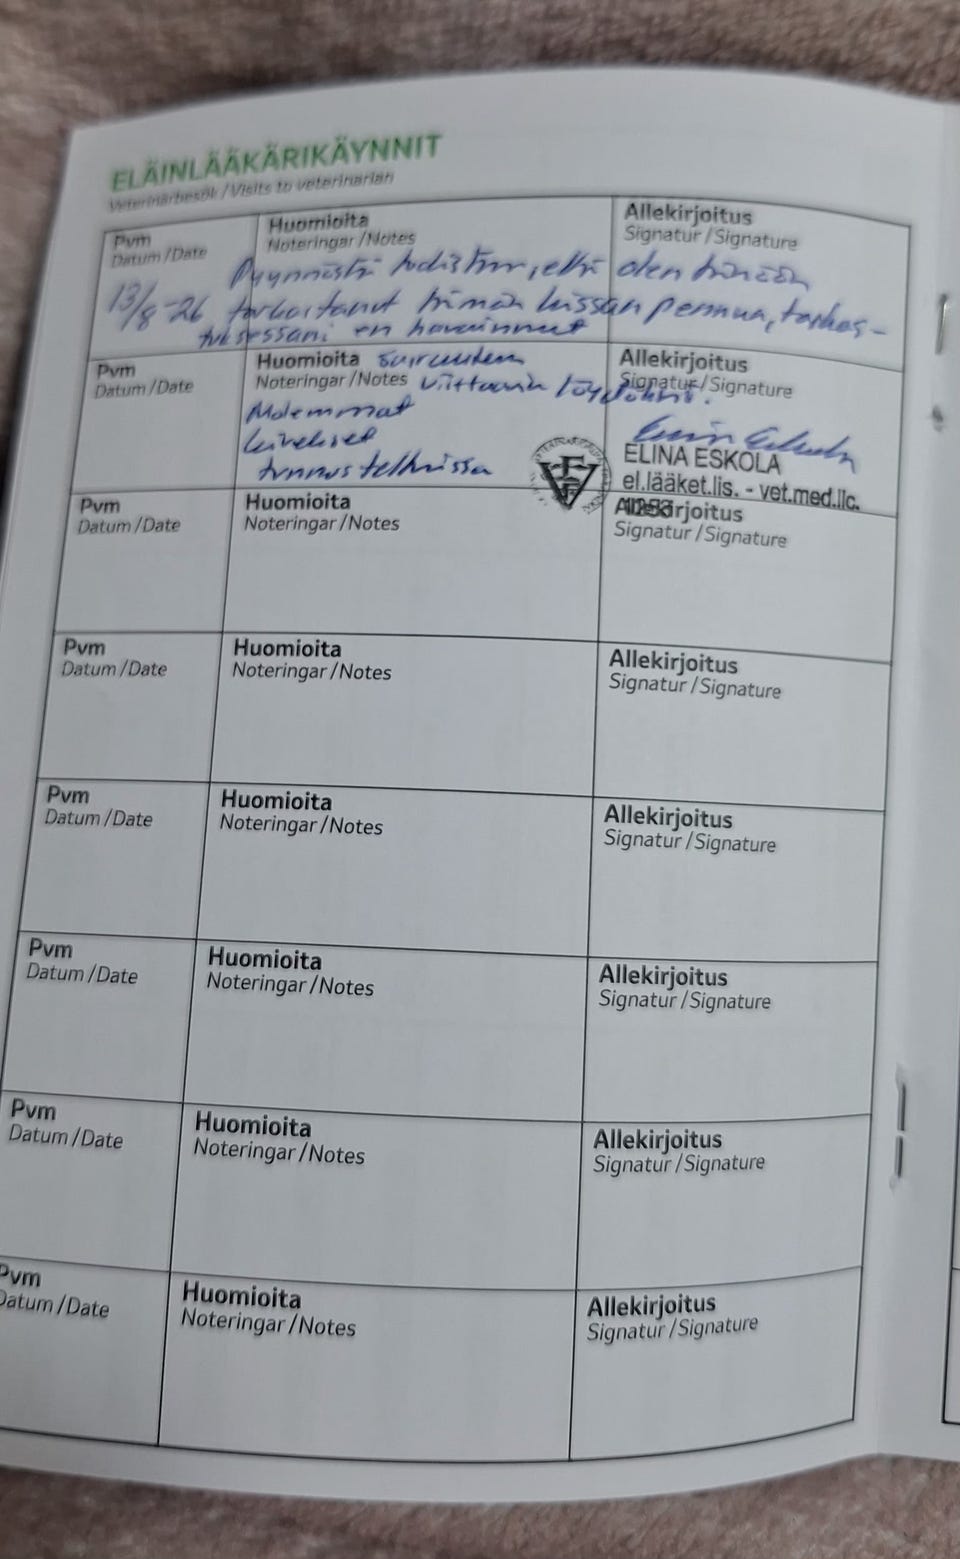 ELÄINLÄÄKÄRIKÄYNNIT
Veterinärbesök / Visits to veterinarian
Pvm
Datum / Date
Huomioita
Noteringar / Notes
Allekirjoitus
Signatur / Signature
Pyynnöstä todistan, että olen tänään
13/8-26 tarkastanut tämän kissan pennun, tarkas-
tuksessani en havainnut
Pvm
Datum / Date
Huomioita sairauteen
Noteringar / Notes viittaavia löydöksiä.
Allekirjoitus
Signatur / Signature
Molemmat
kivekset
tunnusteltavissa
ELINA ESKOLA
el.lääket.lis. - vet.med.lic.
Pvm
Datum / Date
Huomioita
Noteringar / Notes
Allekirjoitus
Signatur / Signature
Pvm
Datum / Date
Huomioita
Noteringar / Notes
Allekirjoitus
Signatur / Signature
Pvm
Datum / Date
Huomioita
Noteringar / Notes
Allekirjoitus
Signatur / Signature
Pvm
Datum / Date
Huomioita
Noteringar / Notes
Allekirjoitus
Signatur / Signature
Pvm
Datum / Date
Huomioita
Noteringar / Notes
Allekirjoitus
Signatur / Signature
Pvm
Datum / Date
Huomioita
Noteringar / Notes
Allekirjoitus
Signatur / Signature